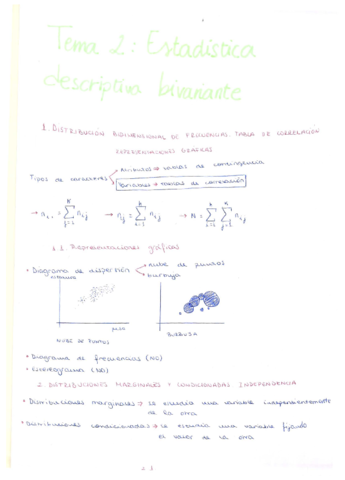 Tema 2: Estadística
descriptiva bivariante
1. DISTRIBUCIÓN BIDIMENSIONAL DE FRECUENCIAS. TABLA DE CORRELACIÓN
REPRESENTACIONES GRÁFICAS
Atributos → tablas de contingencia
Tipos de caracteres
Variables → tablas de correlación
→ ni. = Σ nij → n.j = Σ nij → N = Σ Σ nij
1.1. Representaciones gráficas
• Diagrama de dispersión
nube de puntos
burbuja
peso
NUBE DE PUNTOS
BURBUJA
• Diagrama de frecuencias (NO)
• Estereograma (NO)
2. DISTRIBUCIONES MARGINALES Y CONDICIONADAS. INDEPENDENCIA
• Distribuciones marginales → se estudia una variable independientemente
de la otra
• Distribuciones condicionadas → se estudia una variable fijando
el valor de la otra